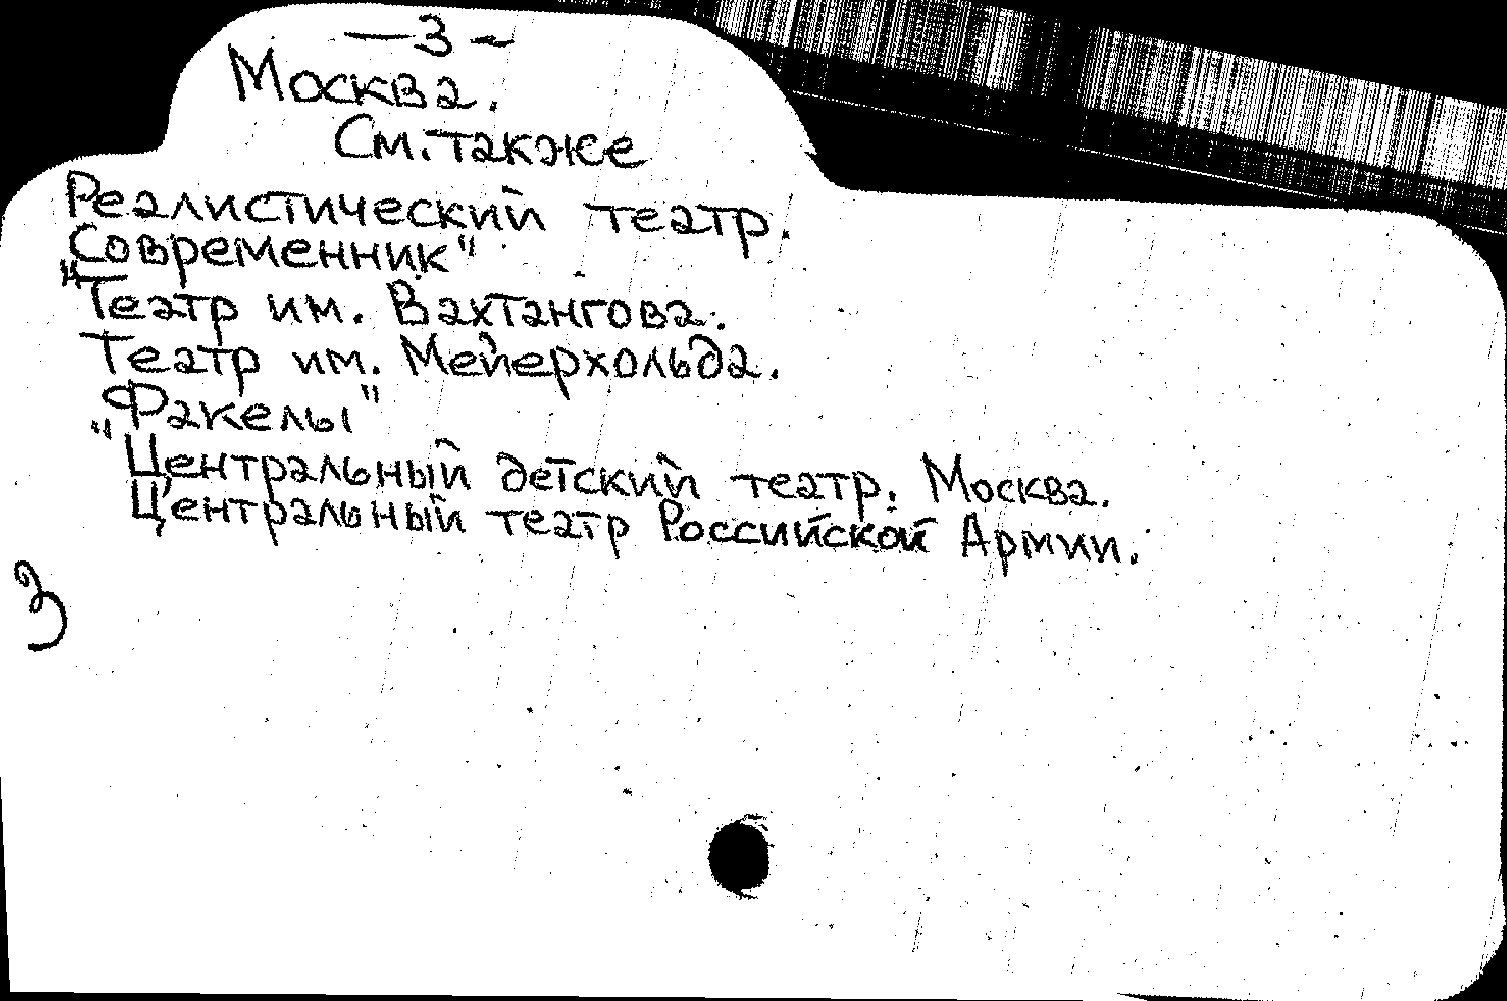 — 3 —
Москва.
См. также
Реалистический театр.
"Современник"
Театр им. Вахтангова.
Театр им. Мейерхольда.
"Факелы"
Центральный детский театр. Москва.
Центральный театр Российской Армии.
3